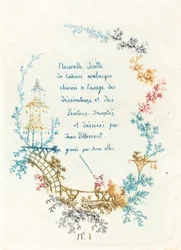 Nouvelle Suitte
de Cahiers arabesques
chinois a l'usage des
Dessinateurs et des
Peintres. Inventés
et dessinés par
Jean Pillement.
gravés par
N.º 1